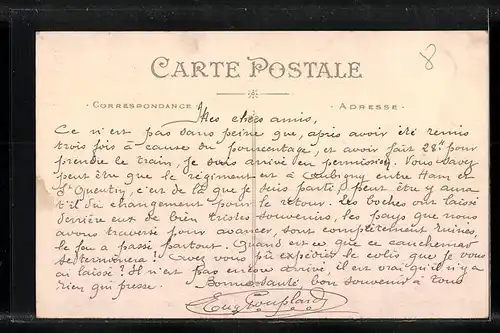 8
CARTE POSTALE
CORRESPONDANCE
ADRESSE
Mes chers amis,
Ce n'est pas sans peine que, après avoir été remis
trois fois à cause du pourcentage, et avoir fait 28k pour
prendre le train, je suis arrivé en permission. Vous savez
peut être que le régiment est à Aubigny entre Ham et
St Quentin, c'est de là que je suis parti, peut être y aura
t'il du changement pour le retour. Les boches ont laissé
derrière eux de bien tristes souvenirs, les pays que nous
avons traversé pour avancer, sont complètement ruinés,
le feu a passé partout. Quand est ce que ce cauchemar
se terminera! Avez vous pû expédier le colis que je vous
ai laissé? Il n'est pas encore arrivé, il est vrai qu'il n'y a
rien qui presse.
Bonne santé, bon souvenir à tous
Eug